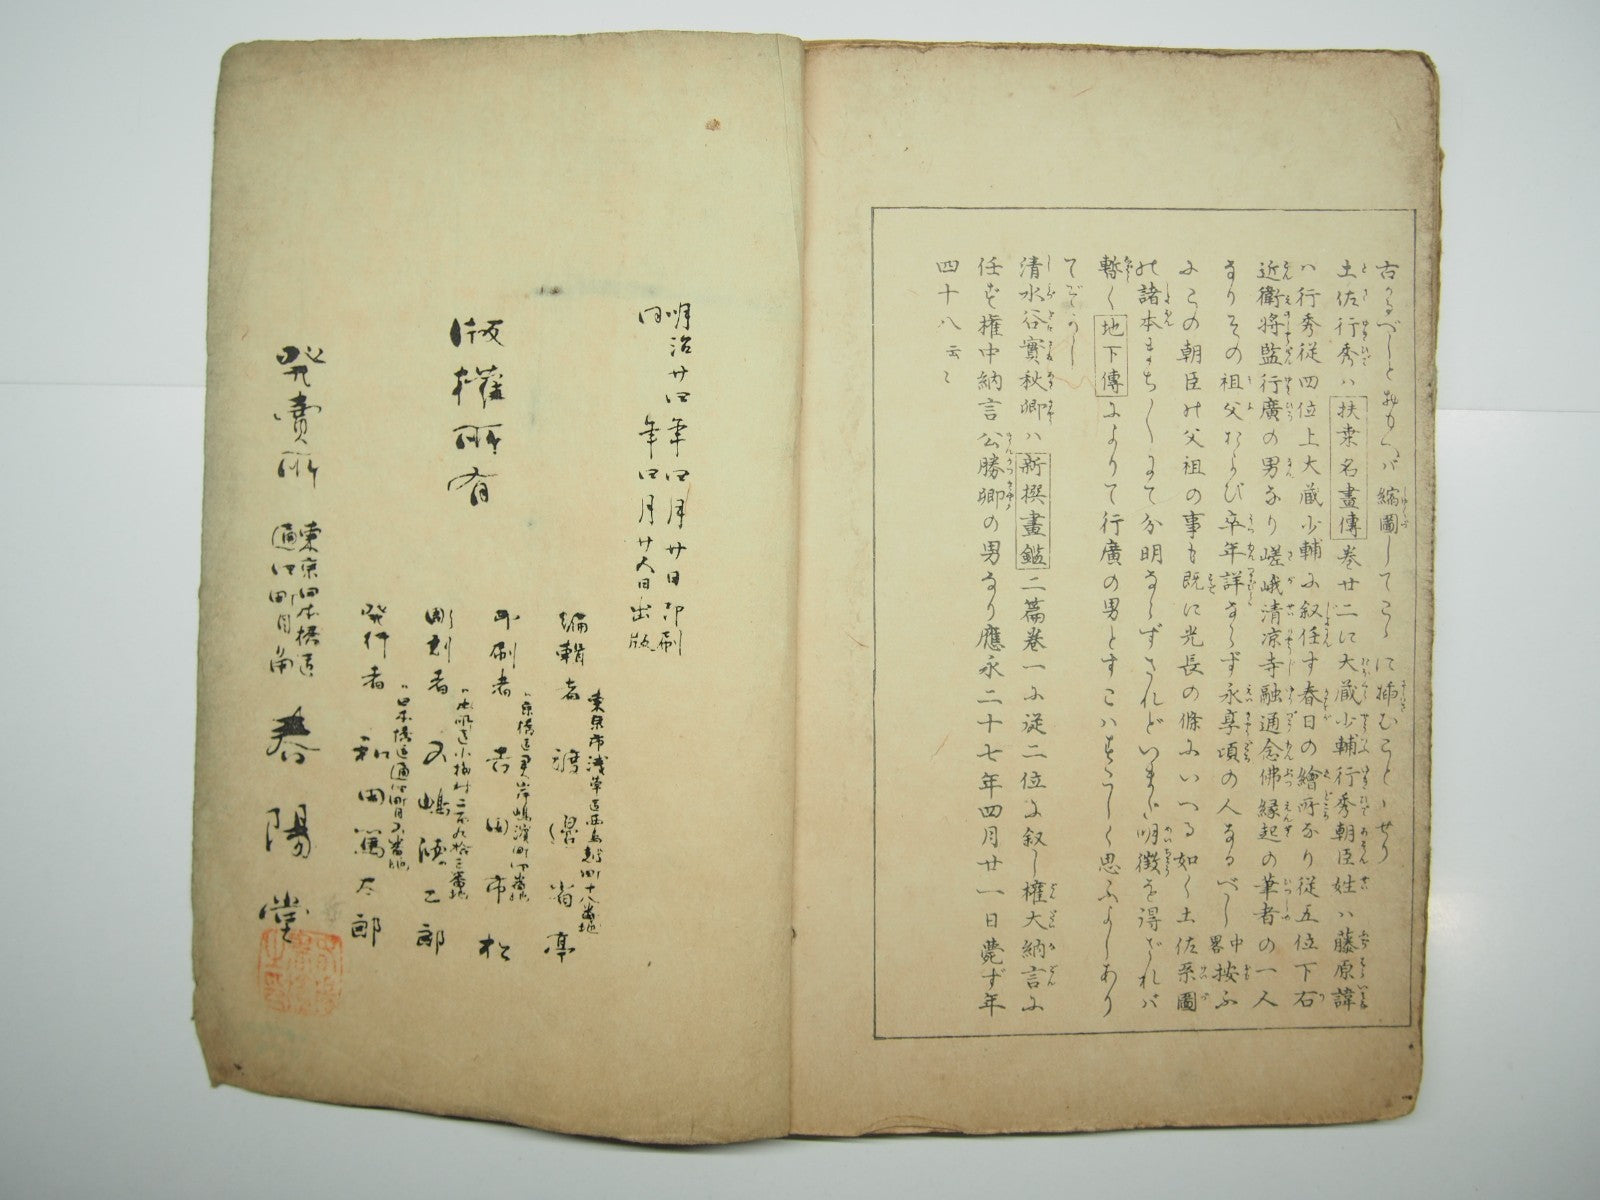 古るべしとおもへバ縮圖してこゝに挿むことゝせり
土佐行秀ハ扶桒名畫傳巻廿二に大蔵少輔行秀朝臣姓ハ藤原諱
ハ行秀従四位上大蔵少輔に叙任す春日の繪所なり従五位下右
近衛将監行廣の男なり嵯峨清凉寺融通念佛縁起の筆者の一人
なりその祖父および卒年詳ならず永享頃の人なるべし中畧按ふ
にこの朝臣の父祖の事も既に光長の條にいへる如く土佐系圖
の諸本まち〳〵にて分明ならずされどいまだ明徴を得ざれバ
暫く地下傳によりて行廣の男とすこハ
思ふよしあり
てぞかし
清水谷實秋卿ハ新撰畫鑑二篇巻一に従二位に叙し権大納言に
任ず権中納言公勝卿の男なり應永二十七年四月廿一日薨ず年
四十八云々
明治廿四年四月廿日印刷
同年四月廿六日出版
版權所有
編輯者
東京市浅草區西鳥越町十八番地
渡邊省亭
印刷者
京橋區
吉田市松
彫刻者
小梅村
五嶋徳二郎
発行者
日本橋區通四町目五番地
和田篤太郎
発賣所
東京日本橋區
通四町目角
春陽堂